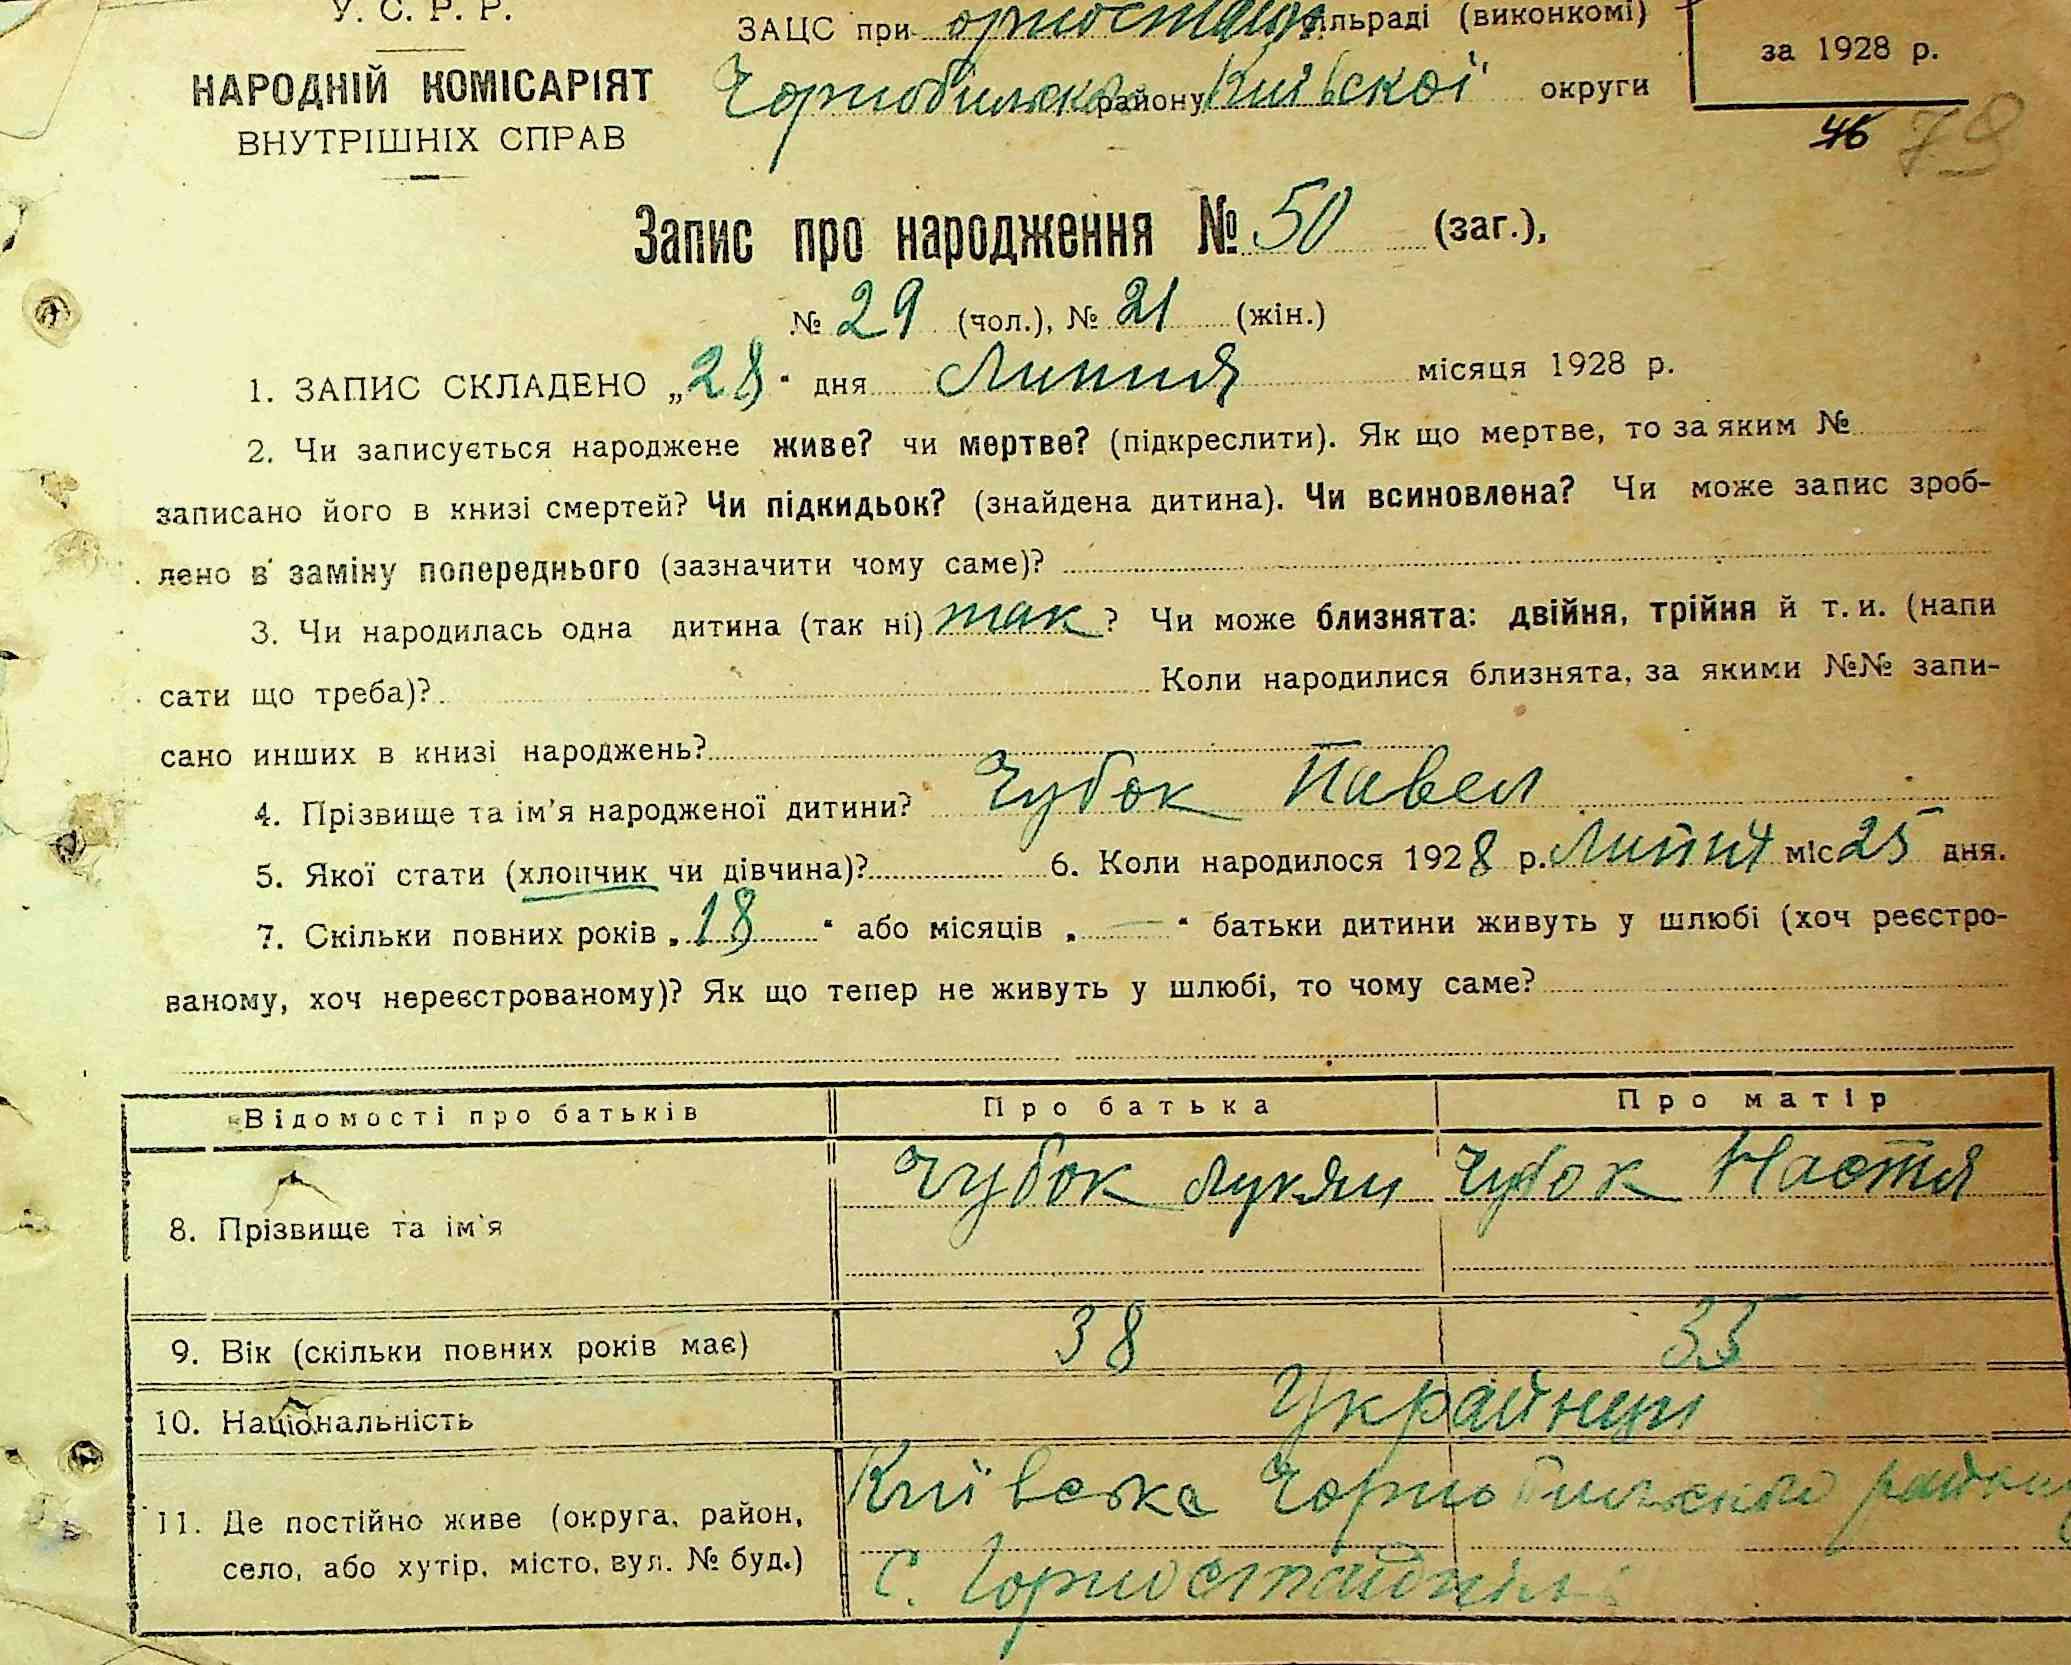 У. С. Р. Р.
НАРОДНІЙ КОМІСАРІЯТ
ВНУТРІШНІХ СПРАВ
ЗАЦС при сільраді (виконкомі)
Чорнобильского району Київської округи
за 1928 р.
46 79
Запис про народження № 50 (заг.),
№ 29 (чол.), № 21 (жін.)
1. ЗАПИС СКЛАДЕНО „28“ дня Липня місяця 1928 р.
2. Чи записується народжене живе? чи мертве? (підкреслити). Як що мертве, то за яким №
записано його в книзі смертей? Чи підкидьок? (знайдена дитина). Чи всиновлена? Чи може запис зроб-
лено в заміну попереднього (зазначити чому саме)?
3. Чи народилась одна дитина (так ні) так ? Чи може близнята: двійня, трійня й т. и. (напи
сати що треба)? Коли народилися близнята, за якими №№ запи-
сано инших в книзі народжень?
4. Прізвище та ім'я народженої дитини? Чубок Павел
5. Якої стати (хлопчик чи дівчина)? 6. Коли народилося 1928 р. Липня міс 25 дня.
7. Скільки повних років „18“ або місяців „—“ батьки дитини живуть у шлюбі (хоч реєстро-
ваному, хоч нереєстрованому)? Як що тепер не живуть у шлюбі, то чому саме?
Відомості про батьків Про батька Про матір
8. Прізвище та ім'я Чубок Лукян Чубок Настя
9. Вік (скільки повних років має) 38 35
10. Національність Українци
11. Де постійно живе (округа, район, Київська Чорнобильского району
село, або хутір, місто, вул. № буд.) с. Горностайпіль